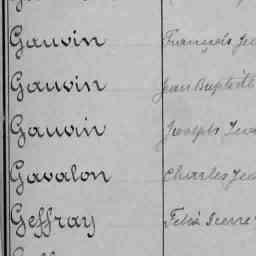 Gauvin François
Gauvin Jean Baptiste
Gauvin Joseph
Gavalon Charles
Geffray Félix Pierre